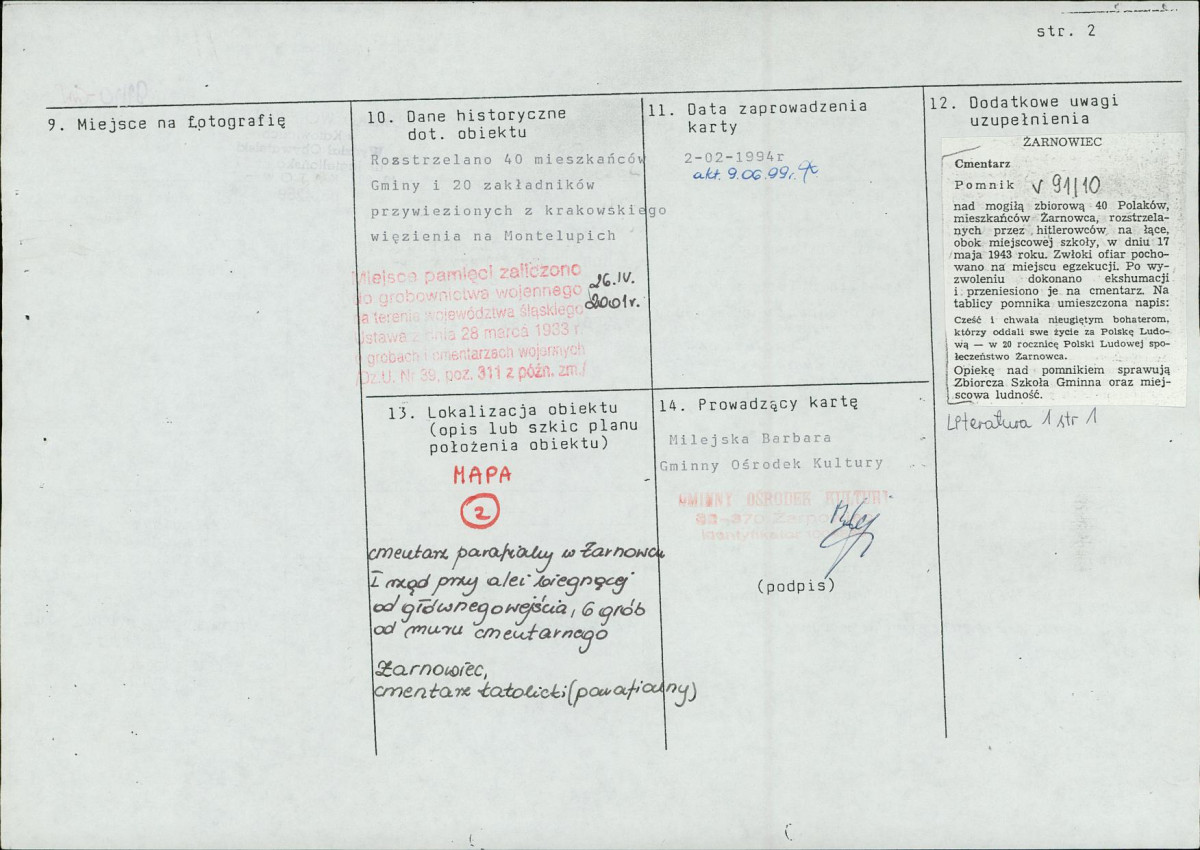 str. 2
9. Miejsce na fotografię
10. Dane historyczne
dot. obiektu
Rozstrzelano 40 mieszkańców
Gminy i 20 zakładników
przywiezionych z krakowskiego
więzienia na Montelupich
Miejsce pamięci zaliczono
do grobownictwa wojennego
na terenie województwa śląskiego
Ustawa z dnia 28 marca 1933 r.
o grobach i cmentarzach wojennych
/Dz.U. Nr 39, poz. 311 z późn. zm./
26.IV.
2001r.
11. Data zaprowadzenia
karty
2-02-1994r
akt. 9.06.99r.
12. Dodatkowe uwagi
uzupełnienia
ŻARNOWIEC
Cmentarz
Pomnik V 91/10
nad mogiłą zbiorową 40 Polaków,
mieszkańców Żarnowca, rozstrzela-
nych przez hitlerowców na łące,
obok miejscowej szkoły, w dniu 17
maja 1943 roku. Zwłoki ofiar pocho-
wano na miejscu egzekucji. Po wy-
zwoleniu dokonano ekshumacji
i przeniesiono je na cmentarz. Na
tablicy pomnika umieszczona napis:
Cześć i chwała nieugiętym bohaterom,
którzy oddali swe życie za Polskę Ludo-
wą — w 20 rocznicę Polski Ludowej spo-
łeczeństwo Żarnowca.
Opiekę nad pomnikiem sprawują
Zbiorcza Szkoła Gminna oraz miej-
scowa ludność.
Literatura 1 str 1
13. Lokalizacja obiektu
(opis lub szkic planu
położenia obiektu)
MAPA
2
cmentarz parafialny w Żarnowcu
I rząd przy alei biegnącej
od głównego wejścia, 6 grób
od muru cmentarnego
Żarnowiec,
cmentarz katolicki (parafialny)
14. Prowadzący kartę
Milejska Barbara
Gminny Ośrodek Kultury
GMINNY OŚRODEK KULTURY
(podpis)